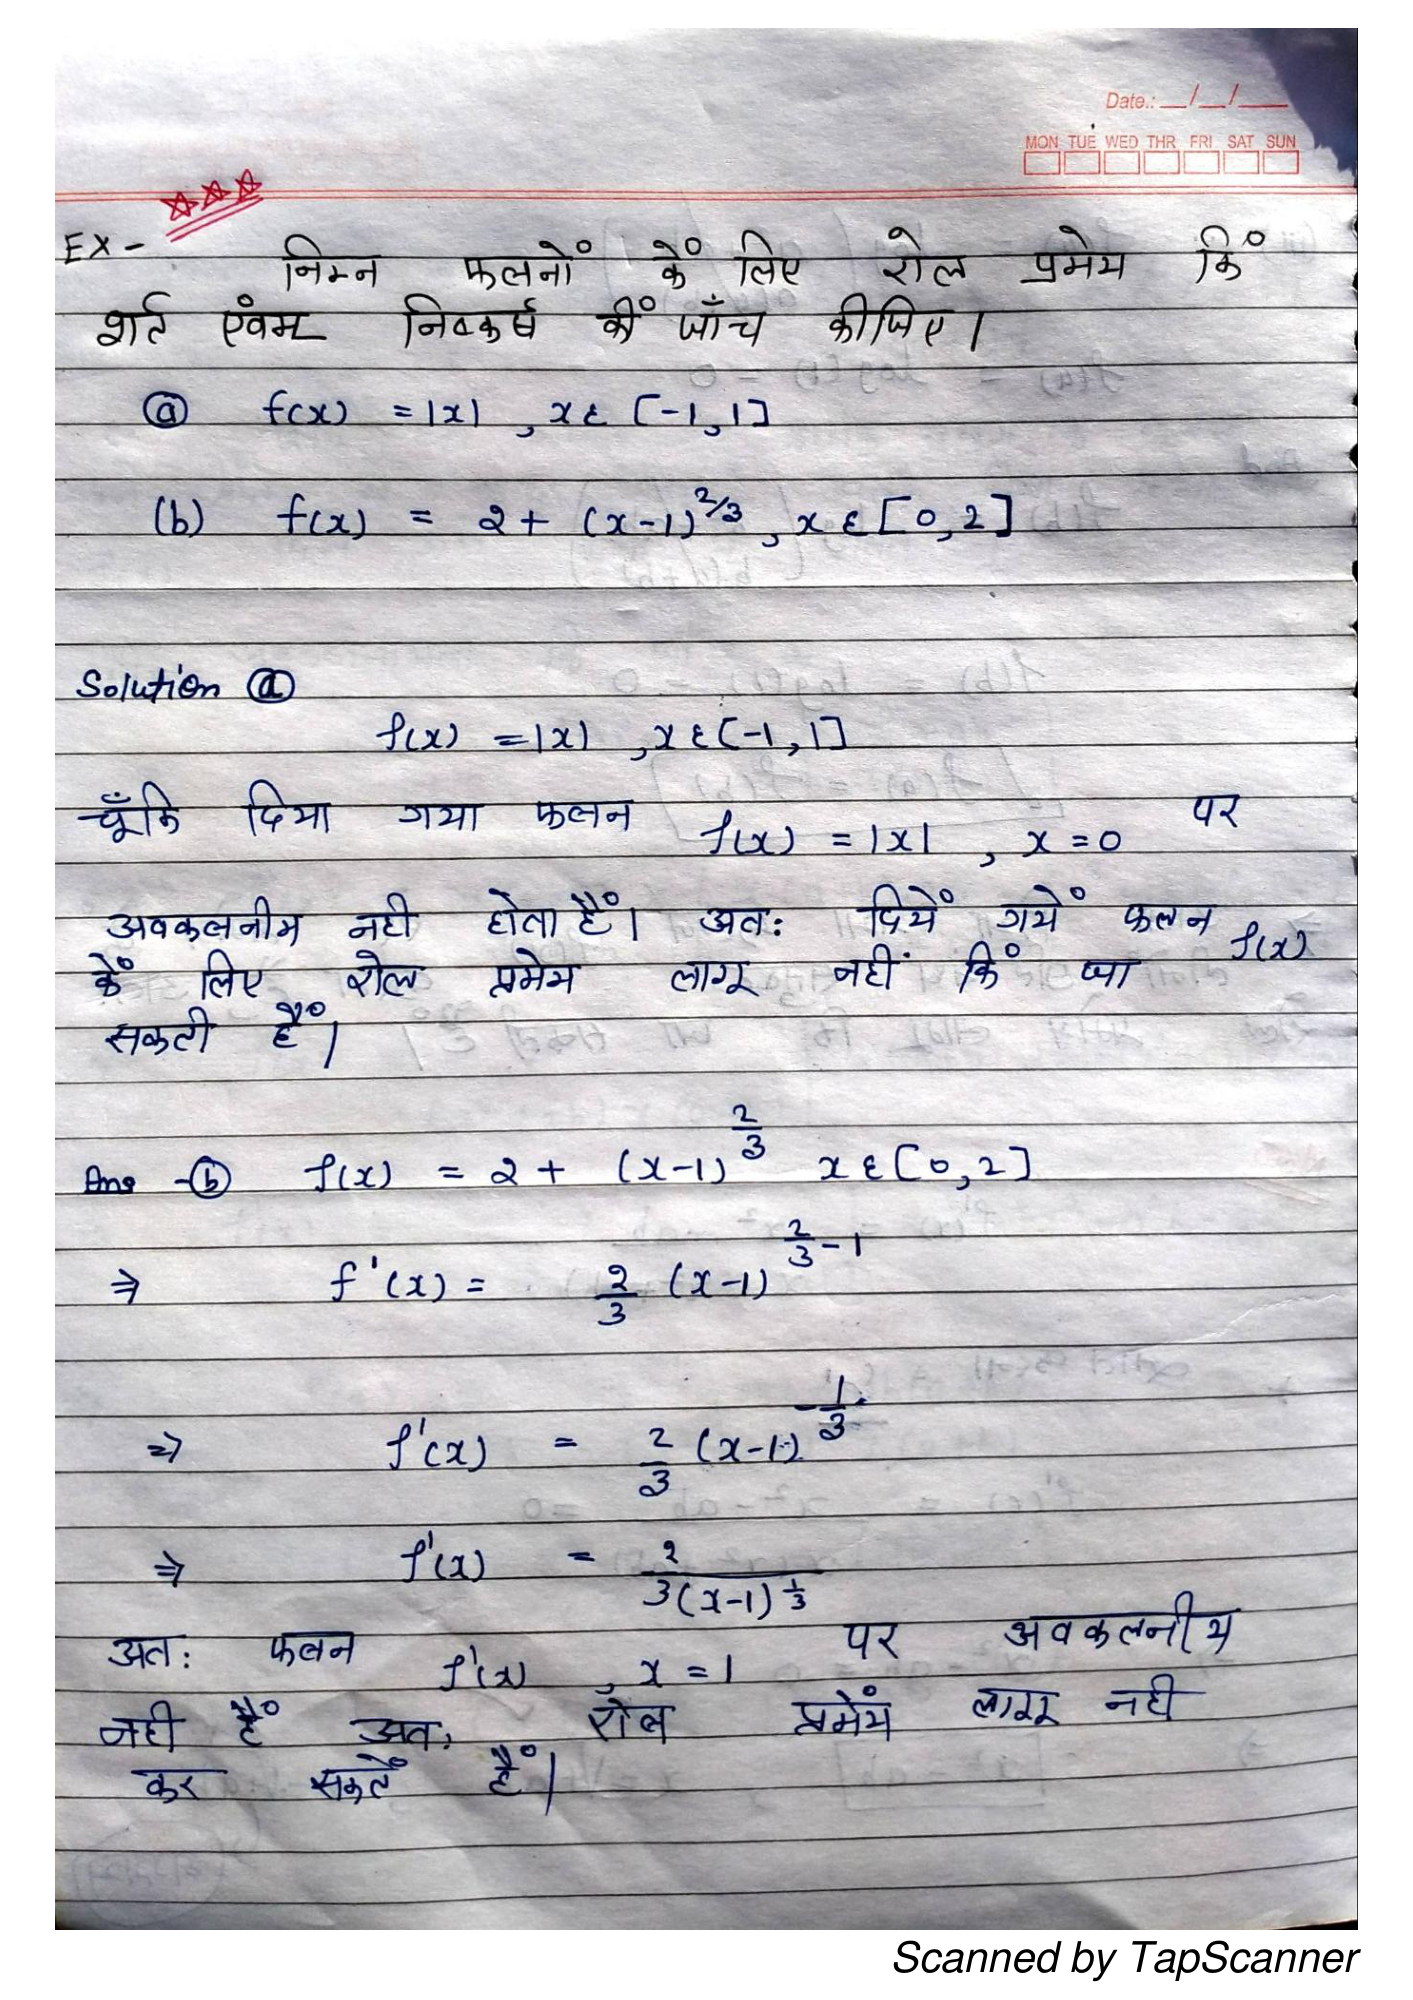 Date.: __/__/___
MON TUE WED THR FRI SAT SUN
EX-
निम्न फलनों के लिए रोल प्रमेय कि
शर्त एंवम निष्कर्ष कीं जाँच कीजिए।
ⓐ f(x) = |x| , x ε [-1,1]
(b) f(x) = 2 + (x-1)^2/3 , x ε [0,2]
Solution ⓐ
f(x) = |x| , x ε [-1,1]
चूँकि दिया गया फलन f(x) = |x| , x = 0 पर
अवकलनीय नही होता हैं। अतः दियें गयें फलन f(x)
कें लिए रोल प्रमेय लागू नहीं किं जा
सकती हैं।
Ans -ⓑ f(x) = 2 + (x-1)^2/3 x ε [0,2]
⇒ f'(x) = 2/3 (x-1)^2/3 - 1
⇒ f'(x) = 2/3 (x-1)^-1/3
⇒ f'(x) = 2/3(x-1)^1/3
अतः फलन f'(x) , x = 1 पर अवकलनीय
नही हैं अतः रोल प्रमेंय लागू नही
कर सकतें हैं।
Scanned by TapScanner